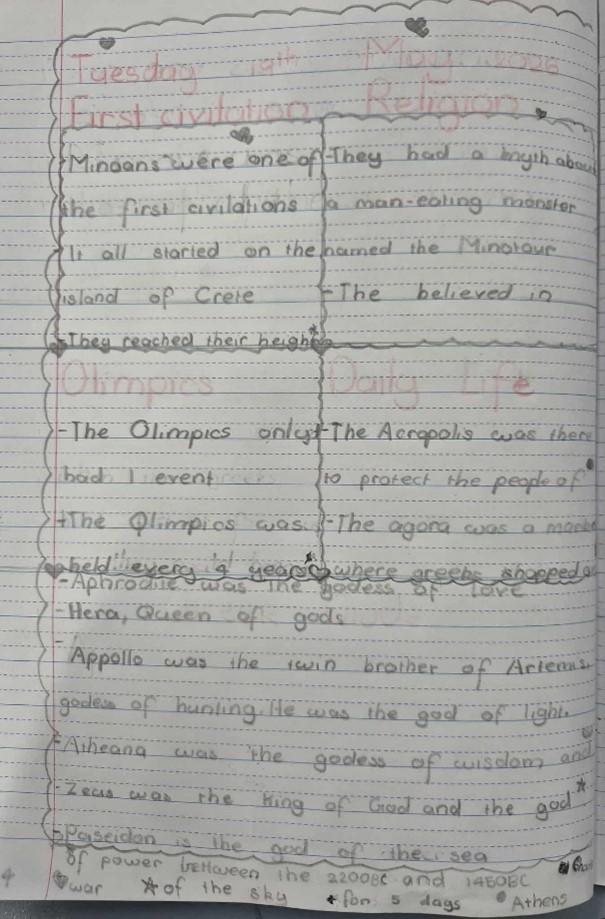 Tuesday 19th May 2026
First civilation
Minoans were one of
the first civilations
It all started on the
island of Crete
They reached their height
Religion
-They had a myth about
a man-eating monster
named the Minotaur
-The believed in
Olimpics
-The Olimpics only
had 1 event
-The Olimpics was
held every 4 years
Daily Life
-The Acropolis was there
to protect the people of
-The agora was a
where greeks shopped
-Aphrodite was the godess of love
-Hera, Queen of gods
-
Appollo was the twin brother of Artemis
godess of hunting. He was the god of light.
-Atheana was the godess of wisdom and
-Zeus was the King of God and the god
-Poseidon is the god of the sea
of power between the 2200BC and 1450BC
war of the sky for 5 days Athens